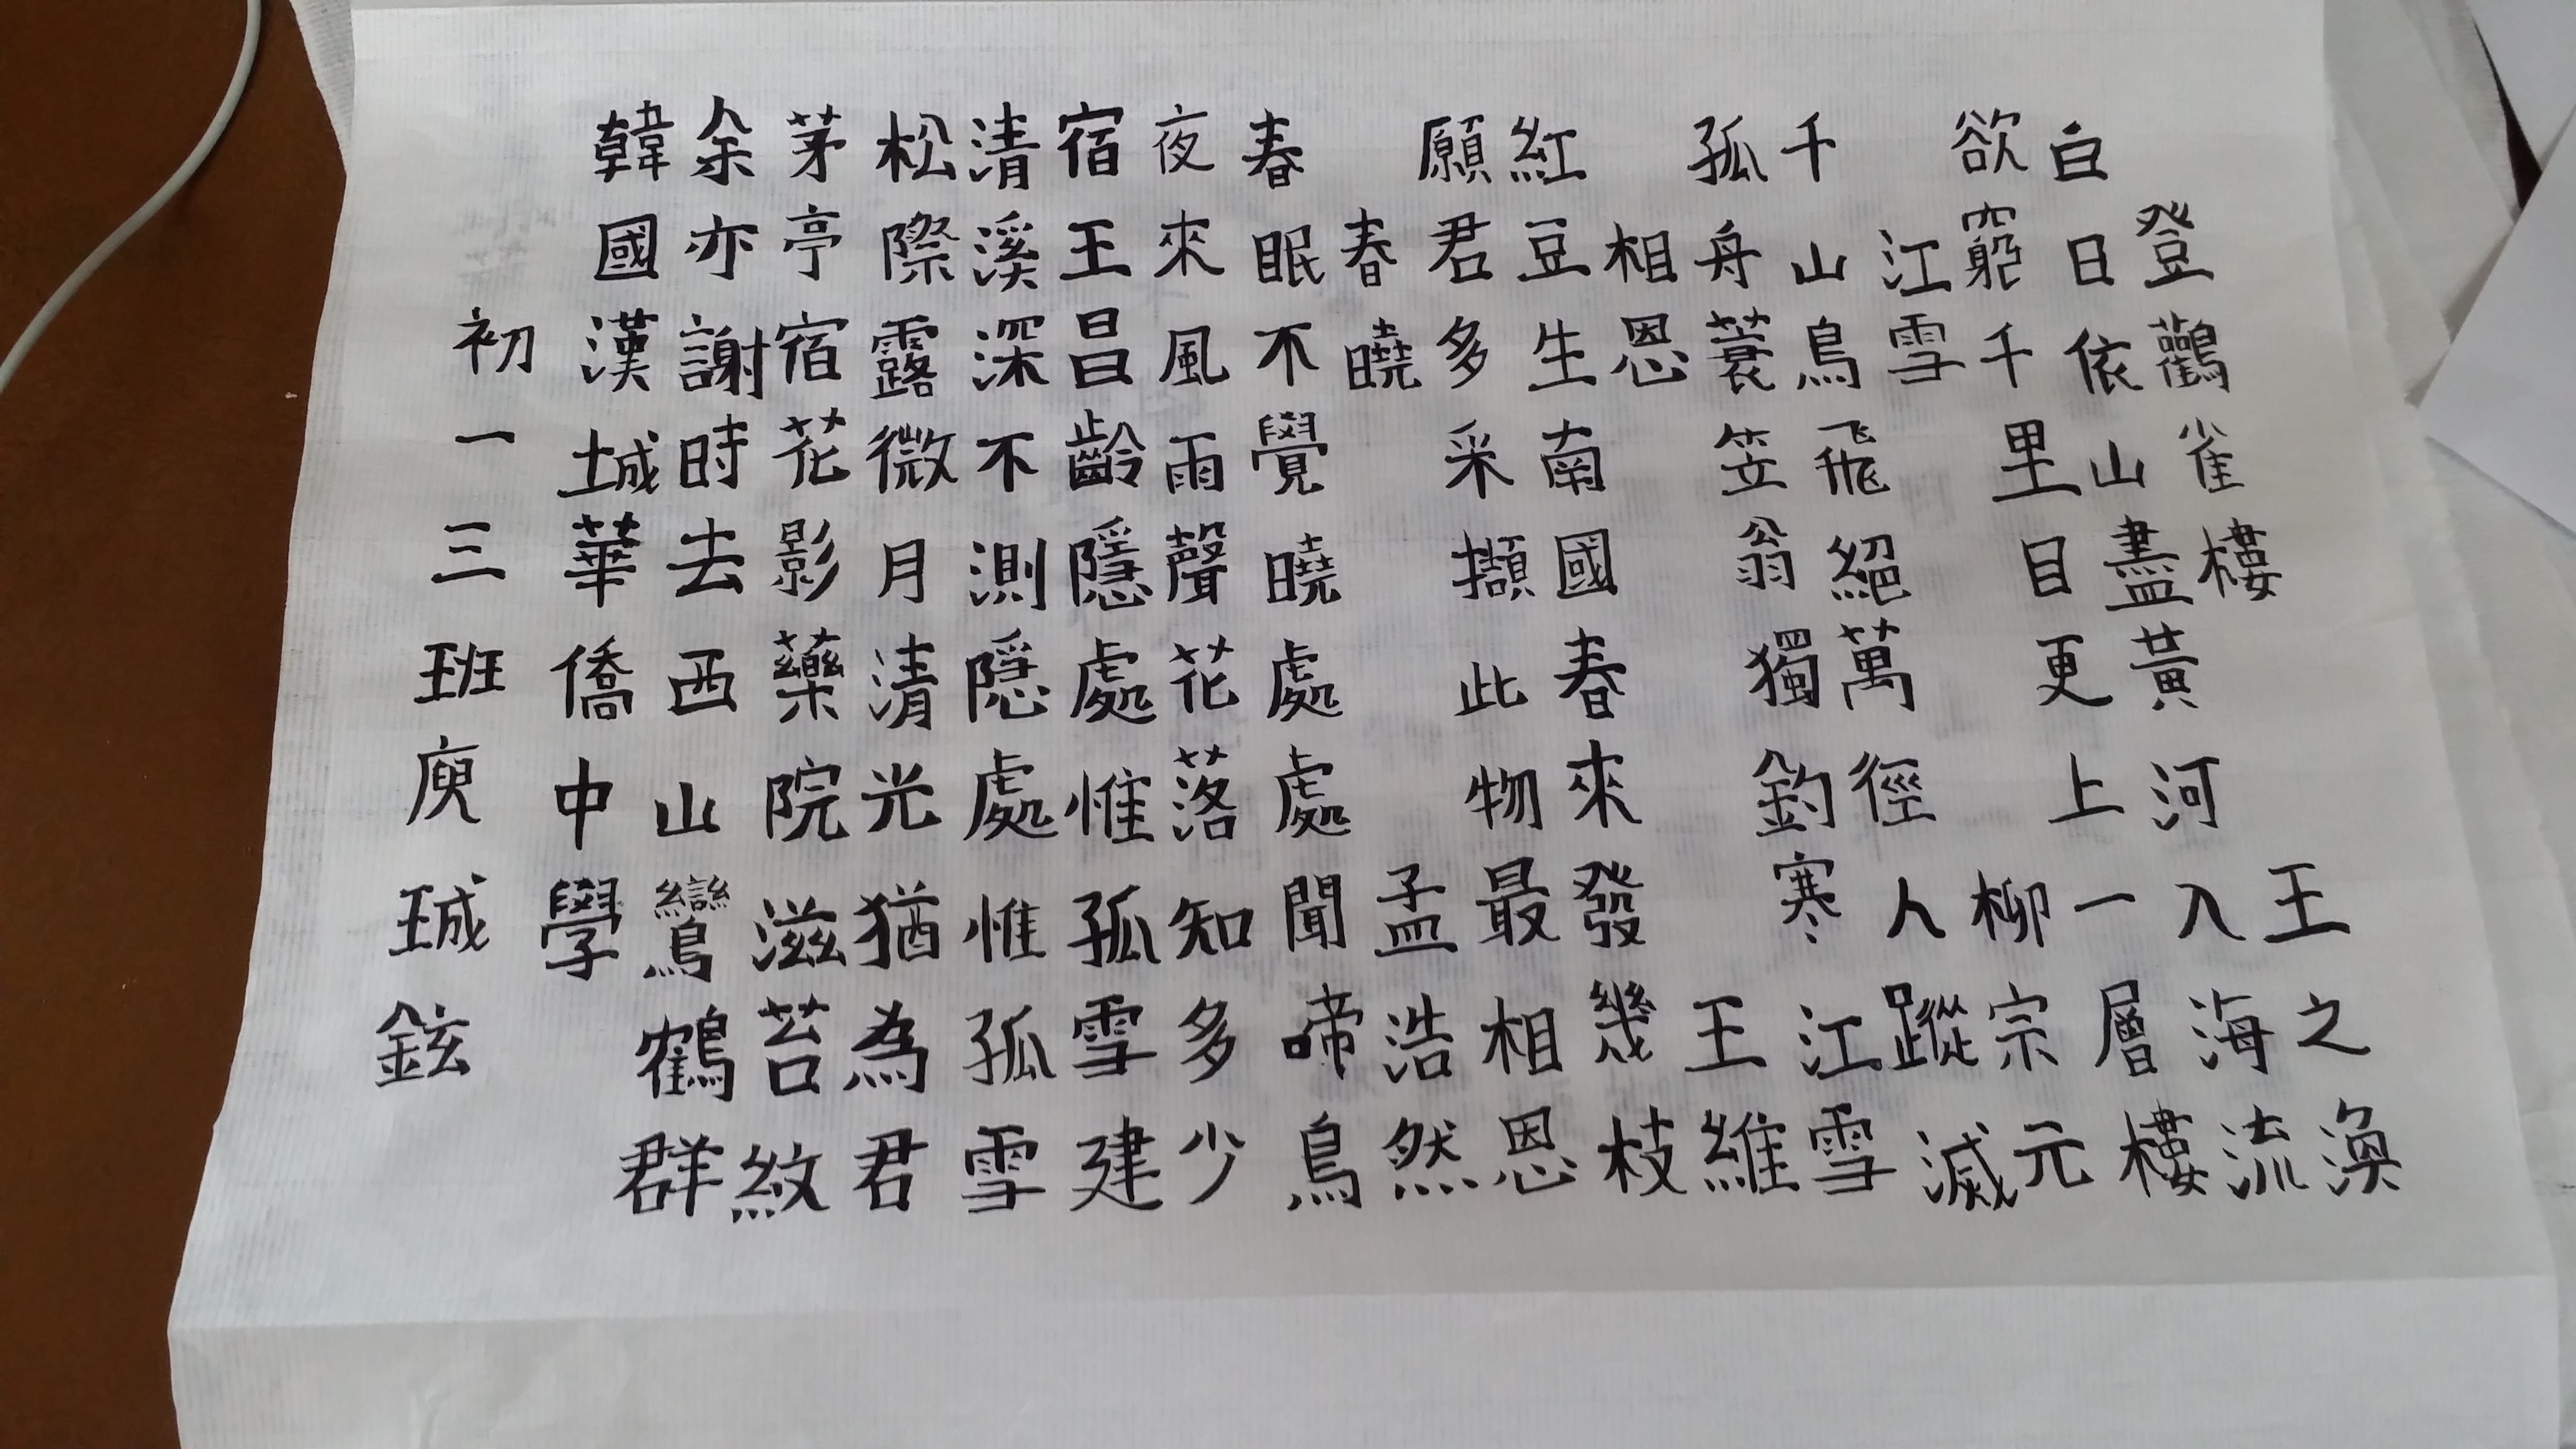 登鸛雀樓 王之渙
白日依山盡黃河入海流
欲窮千里目更上一層樓
江雪 柳宗元
千山鳥飛絕萬徑人蹤滅
孤舟蓑笠翁獨釣寒江雪
相恩 王維
紅豆生南國春來發幾枝
願君多采擷此物最相恩
春曉 孟浩然
春眠不覺曉處處聞啼鳥
夜來風雨聲花落知多少
宿王昌齡隱處惟孤雪建
清溪深不測隱處惟孤雪
松際露微月清光猶為君
茅亭宿花影藥院滋苔紋
余亦謝時去西山鸞鶴群
韓國漢城華僑中學
初一三班庾珹鉉